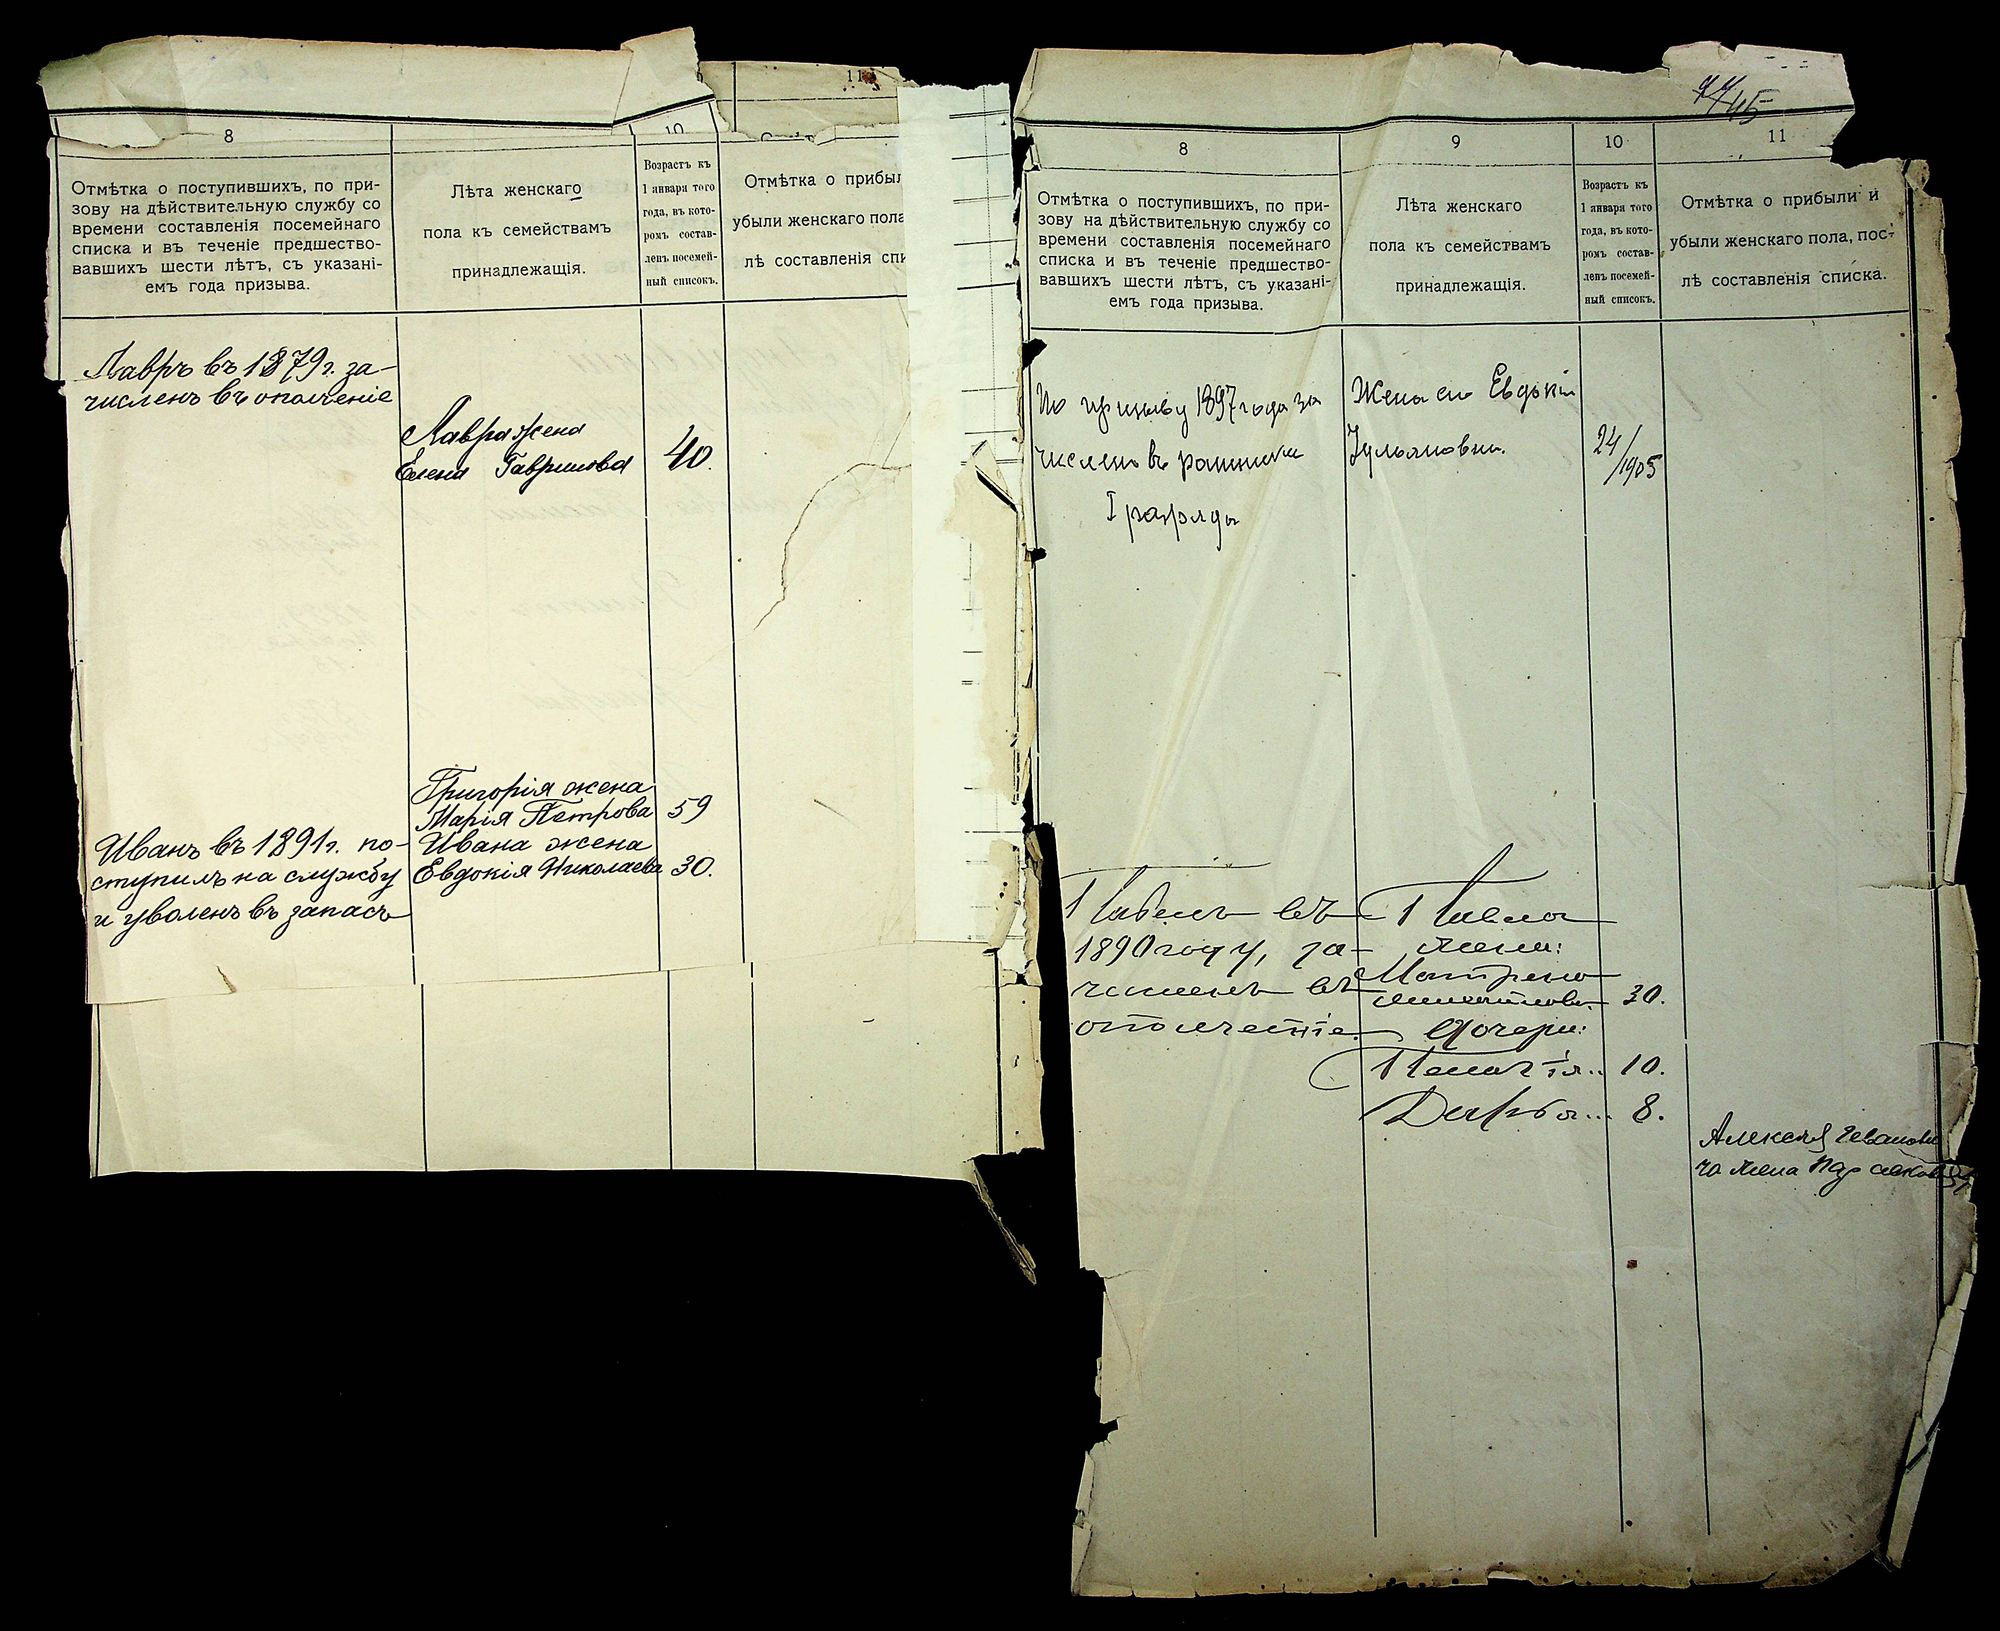 8
10
11
Отмѣтка о поступившихъ, по при-
зову на дѣйствительную службу со
времени составленія посемейнаго
списка и въ теченіе предшество-
вавшихъ шести лѣтъ, съ указані-
емъ года призыва.
Лѣта женскаго
пола къ семействамъ
принадлежащія.
Возрастъ къ
1 января того
года, въ кото-
ромъ состав-
ленъ посемей-
ный списокъ.
Отмѣтка о прибыл
убыли женскаго пола
лѣ составленія спи
Лавръ въ 1879 г. за-
численъ въ ополченіе
Лавра жена
Елена Гаврилова 40.
Григорія жена
Марія Петрова 59
Иванъ въ 1891 г. по-
ступилъ на службу
и уволенъ въ запасъ
Ивана жена
Евдокія Николаева 30.
45
8
9
10
11
Отмѣтка о поступившихъ, по при-
зову на дѣйствительную службу со
времени составленія посемейнаго
списка и въ теченіе предшество-
вавшихъ шести лѣтъ, съ указані-
емъ года призыва.
Лѣта женскаго
пола къ семействамъ
принадлежащія.
Возрастъ къ
1 января того
года, въ кото-
ромъ состав-
ленъ посемей-
ный списокъ.
Отмѣтка о прибыли и
убыли женскаго пола, пос-
лѣ составленія списка.
По призыву 1897 года за
численъ въ ратники
I разряда
Жена его Евдокія
Ульяновна.
24/1905
Павелъ въ
1890 году, за-
численъ въ
ополченіе.
Павла
жена:
Матрена
30.
Дочери:
Пелагія.. 10.
Дарья... 8.
Алексѣя Иванови
ча жена